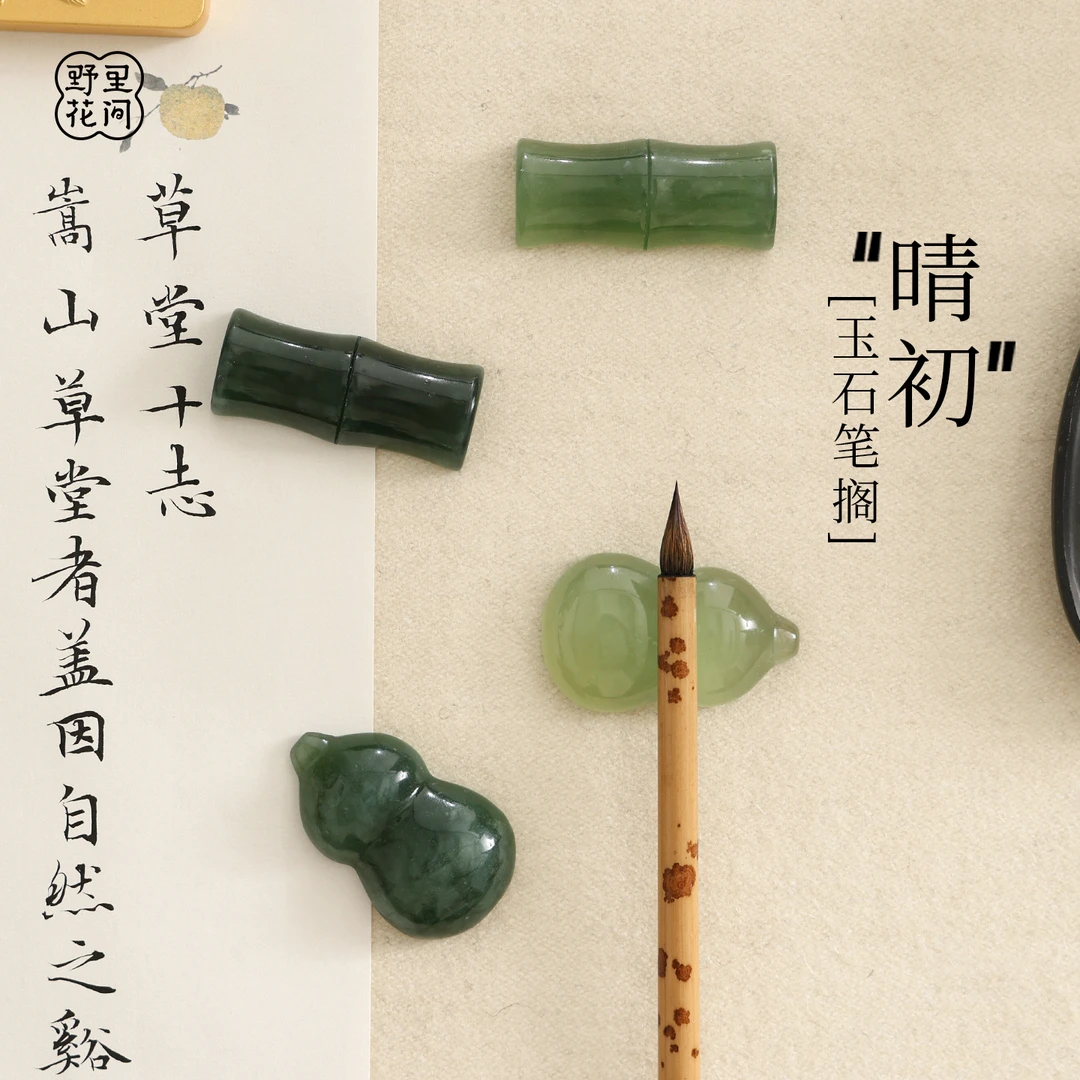 野里
花间
草堂十志
嵩山草堂者盖因自然之谿
"晴初"
[玉石笔搁]